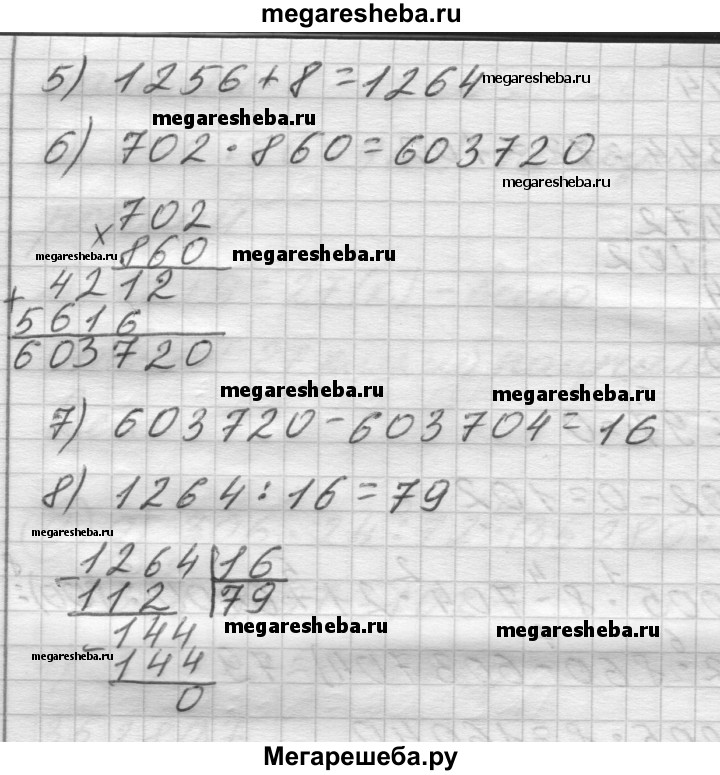 megaresheba.ru
5) 1256+8=1264 megaresheba.ru
megaresheba.ru
6) 702·860=603720
megaresheba.ru
702
x
megaresheba.ru 860 megaresheba.ru
+ 4212
5616
603720
megaresheba.ru megaresheba.ru
7) 603720-603704=16
8) 1264:16=79
megaresheba.ru
- 1264 | 16
112 | 79
megaresheba.ru megaresheba.ru
- 144
megaresheba.ru 144
0
Мегарешеба.ру